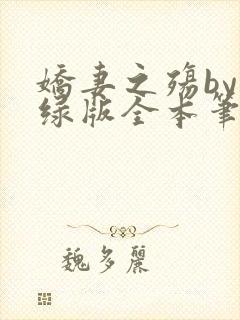 娇妻之殇by
绿版全本笔
魏多丽